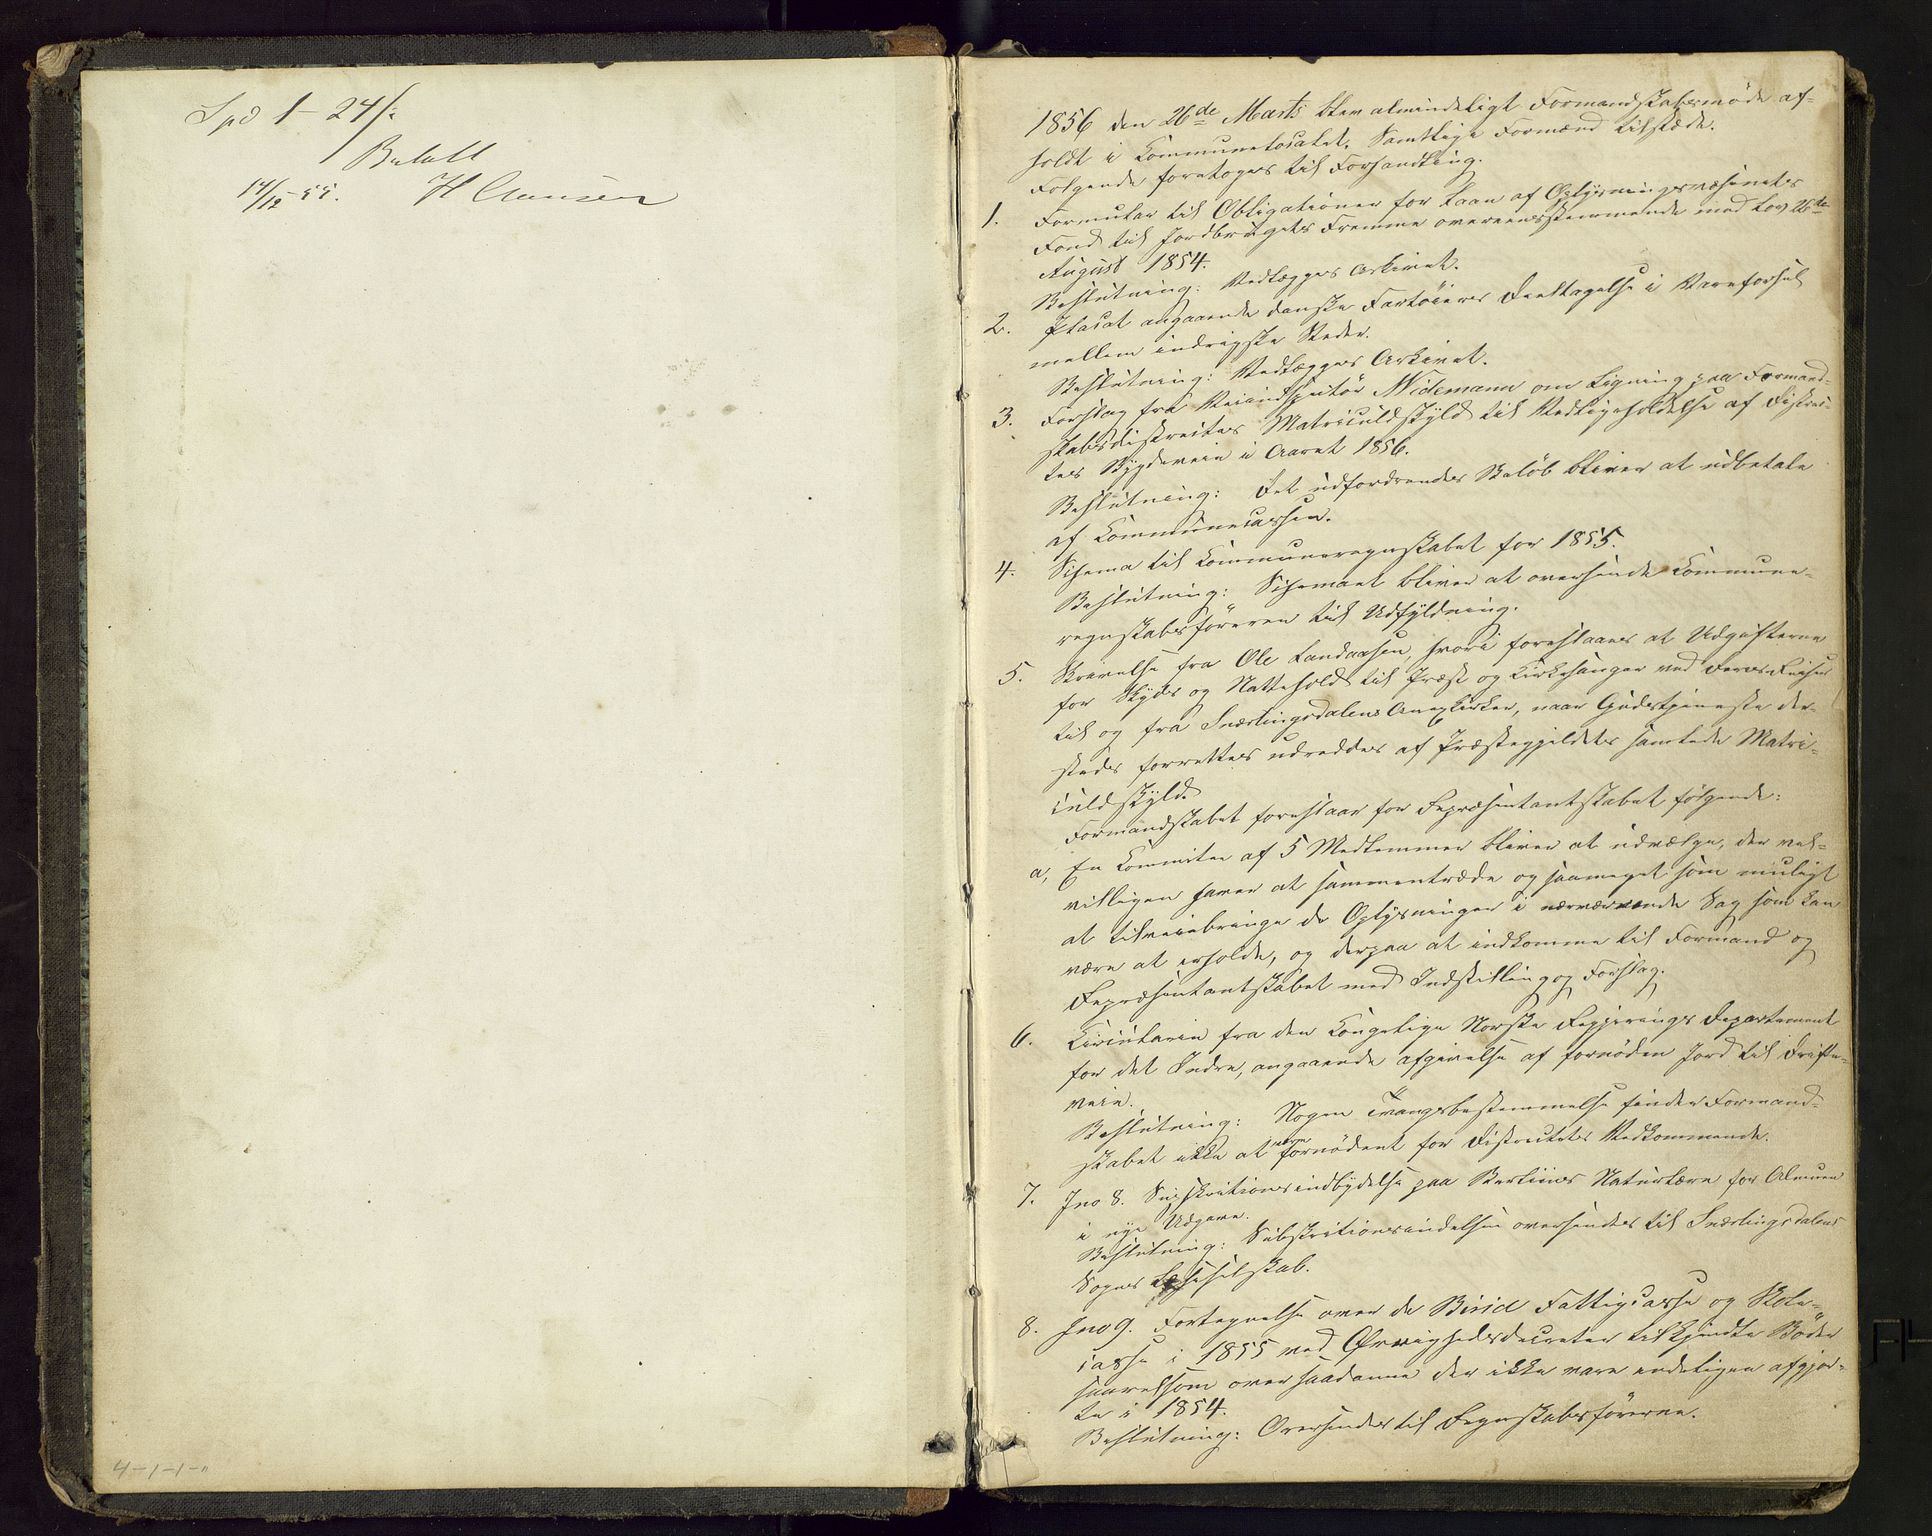 Spd 1 - 24 /:
Betalt
14/12-55. H Clausen
4-1-1-"
1856 den 26de Marts blev almindeligt Formandskabsmøde af-
holdt i Communelocalet. Samtlige Formænd tilstæde.
Følgende foretoges til Forhandling.
1. Formular til Obligationer for Laan af Oplysningsvæsenets
Fond til Jordbrugets Fremme overeensstemmende med Lov 26de
August 1854.
Beslutning: Vedlægges Arkivet.
2. Placat angaaende danske Fartøiers Deeltagelse i Vareførsel
mellem indrigske Steder.
Beslutning: Vedlægges Arkivet.
3. Forslag fra Veiinspektør N Widemann om Ligning paa Formand-
skabsdistrictets Matriculskyld til Vedligeholdelse af Distric-
tets Bygdeveie i Aaret 1856.
Beslutning: Det udfordrendes Beløb bliver at udbetale
af Communecassen.
4. Schema til Communeregnskabet for 1855.
Beslutning: Schemaet bliver at oversende Commune-
regnskabsføreren til Udfyldning.
5. Skrivelse fra Ole Landaasen, hvori foreslaaes at Udgifterne
for Skyds og Natteholdt til Præst og Kirkesanger ved deres Reiser
til og fra Snærtingsdalens Anexkirker, naar Gudstjeneste der-
steds forrettes udreddes af Præstegjeldets samtlede Matri-
culskyld.
Formandskabet foreslaar for Repræsentantskabet følgende:
a, En Committee af 5 Medlemmer bliver at udvælge, der vel-
villigen haver at sammentræde og saameget som muligt
at tilveiebringe de Oplysninger i nærværende Sag som kan
være at erholde, og derpaa at indkomme til Formand og
Repræsentantskabet med Indstilling og Forslag.
6. Circulaire fra den Kongelige Norske Regjerings Departement
for det Indre, angaaende afgivelse af fornøden Jord til Drifte-
veie.
Beslutning: Nogen Tvangsbestemmelse finder Formand-
skabet ikke at være fornødent for Districtets Vedkommende.
7. Jno 8. Supskritionsindbydelse paa Berliins Naturlære for Almuen
i nye Udgave.
Beslutning: Subskritionsindelsen oversendes til Snærtingsdalens
Sogns Læseselskab.
8. Jno 9. Fortegnelse over de Birid Fattigcasse og Skole-
casse i 1855 ved Øvrighedsdecreter tilkjendte Bøder
saavelsom over saadanne der ikke vare endeligen afgjor-
te i 1854.
Beslutning: Oversendes til Regnskabsføreren.